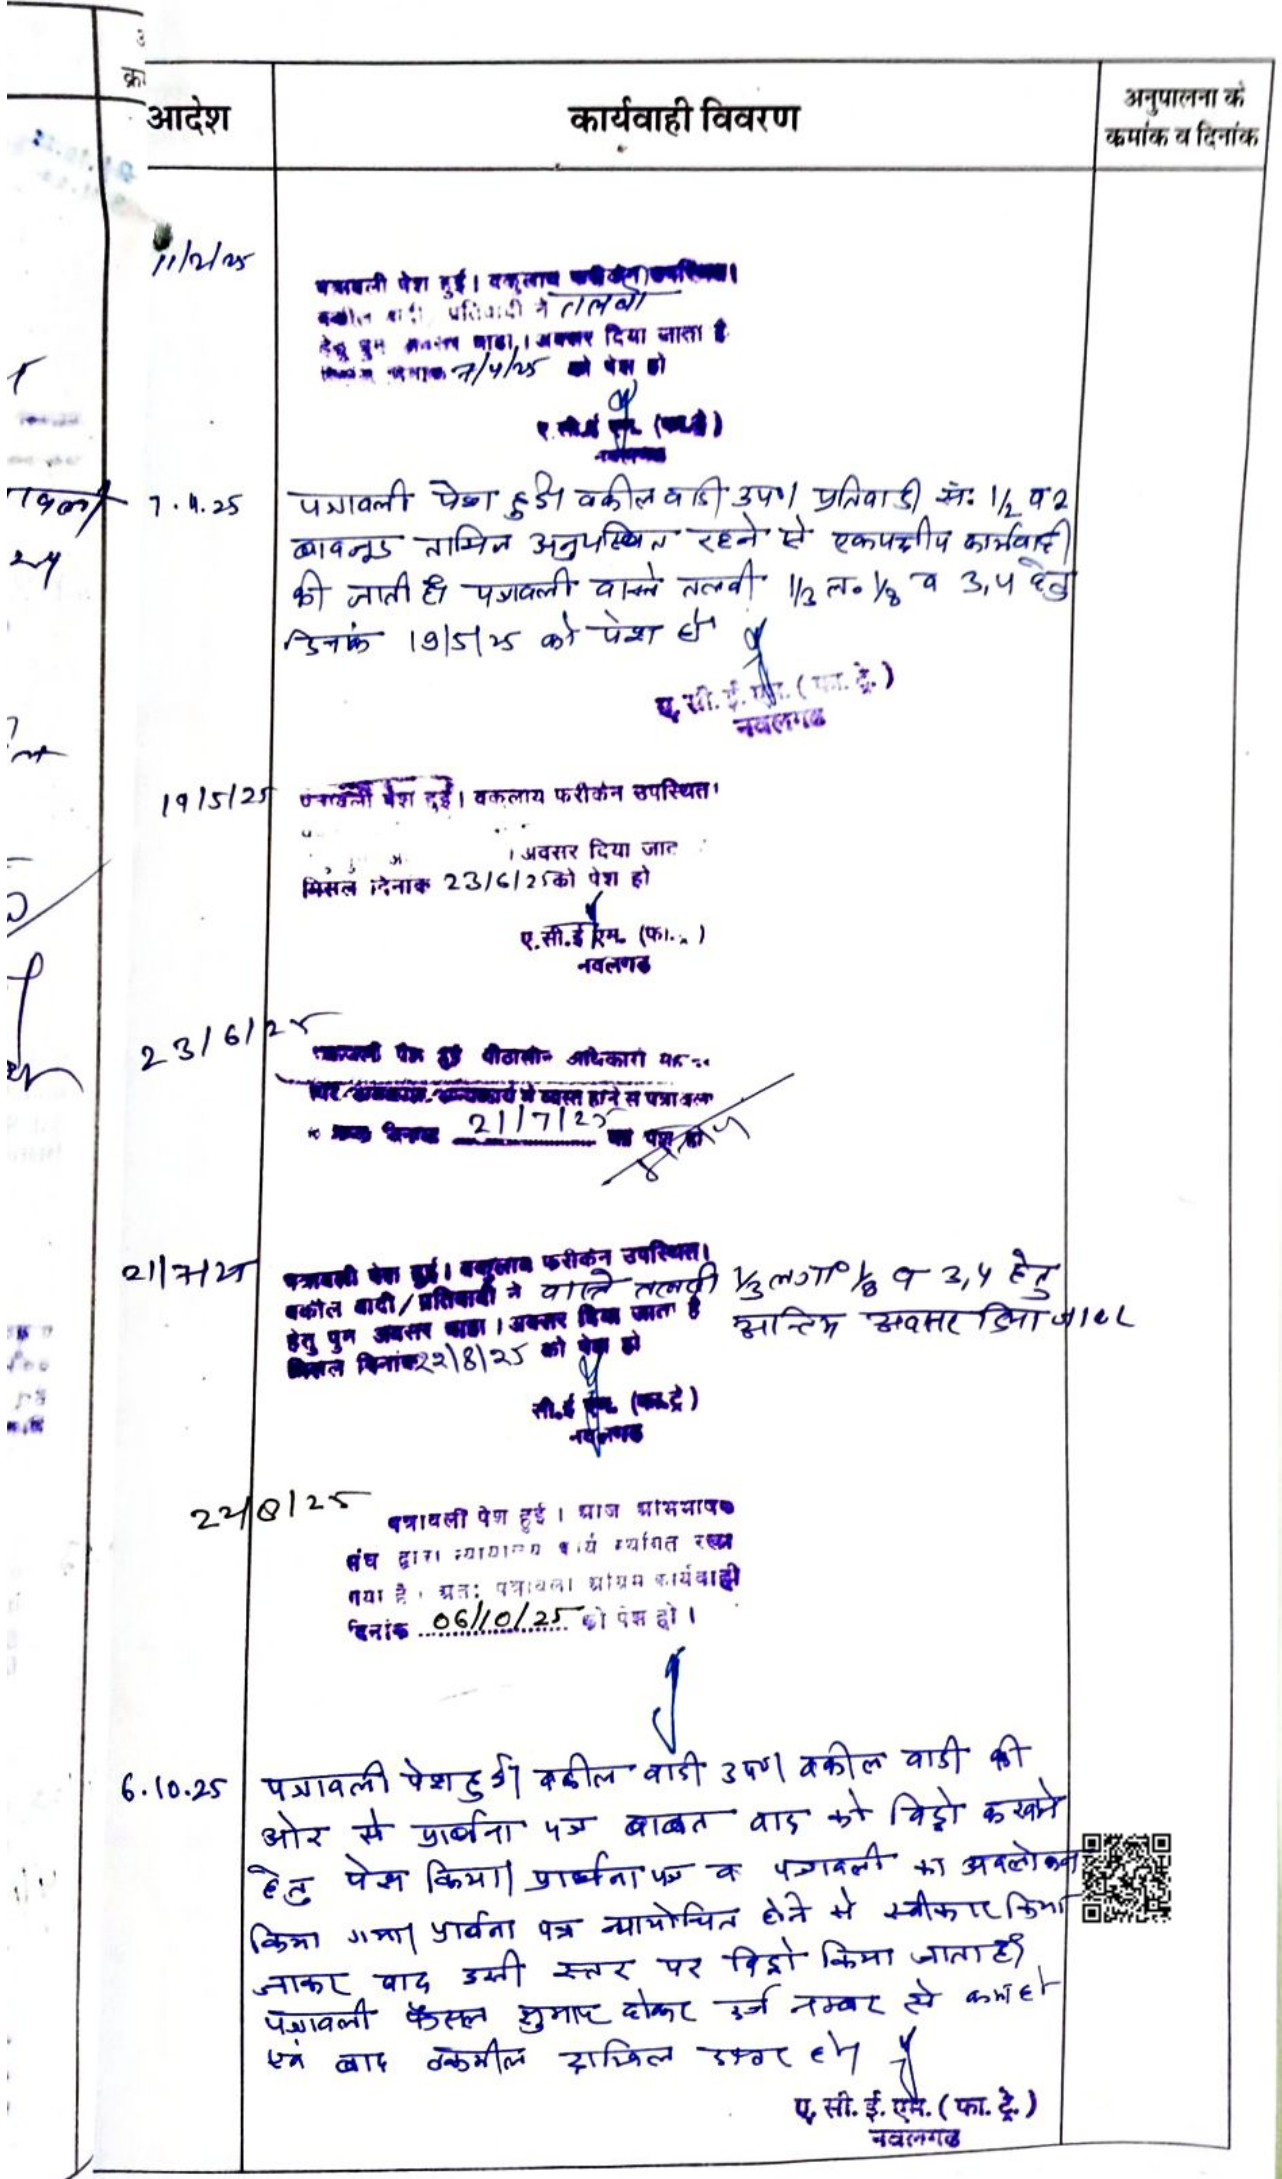 आदेश
कार्यवाही विवरण
अनुपालना के
कमांक व दिनांक
11/2/25
पत्रावली पेश हुई। वकूलाय फरीकेन उपस्थित।
वकील वादी प्रतिवादी ने तलबी
हेतु पुन अवसर चाहा। अवसर दिया जाता है
7/4/25 को पेश हो
ए.सी.ई.एम. (फा.ट्रे)
नवलगढ
7.4.25
पत्रावली पेश हुई। वकील वादी उप०। प्रतिवादी सं: 1/2 व 2
बावजूद तामिल अनुपस्थित रहने से एकपक्षीय कार्यवाही
की जाती है। पत्रावली वास्ते तलबी 1/3 ल० 1/8 व 3,4 हेतु
दिनांक 19/5/25 को पेश हो
ए.सी.ई.एम.(फा.ट्रे.)
नवलगढ
19/5/25
पत्रावली पेश हुई। वकलाय फरीकेन उपस्थित।
। अवसर दिया जात
मिसल दिनाक 23/6/25 को पेश हो
ए.सी.ई एम. (फा. )
नवलगढ
23/6/25
पत्रावली पेश हुई पीठासीन अधिकारी
में व्यस्त होने से पत्रावली
21/7/25 को पेश हो
21/7/25
पत्रावली पेश हुई। वकूलाय फरीकेन उपस्थित।
वकील वादी/प्रतिवादी ने वास्ते तलबी 1/3 लगा० 1/8 व 3,4 हेतु
हेतु पुन अवसर चाहा। अवसर दिया जाता है अन्तिम अवसर दिया जाता
मिसल दिनांक 22/8/25 को पेश हो
सी.ई एम. (फा.ट्रे)
नवलगढ
22/8/25
पत्रावली पेश हुई। आज अभिभाषक
संघ द्वारा न्यायालय कार्य स्थगित रखा
गया है। अत: पत्रावली अग्रिम कार्यवाही
दिनांक 06/10/25 को पेश हो।
6.10.25
पत्रावली पेश हुई। वकील वादी उप०। वकील वादी की
ओर से प्रार्थना पत्र बाबत वाद को विड्रो करवाने
हेतु पेश किया। प्रार्थना पत्र व पत्रावली का अवलोकन
किया गया। प्रार्थना पत्र न्यायोचित होने से स्वीकार किया
जाकर वाद इसी स्तर पर विड्रो किया जाता है।
पत्रावली फैसल शुमार होकर दर्ज नम्बर से कम हो
एवं बाद तकमील दाखिल दफ्तर हो।
ए.सी.ई.एम.(फा.ट्रे.)
नवलगढ